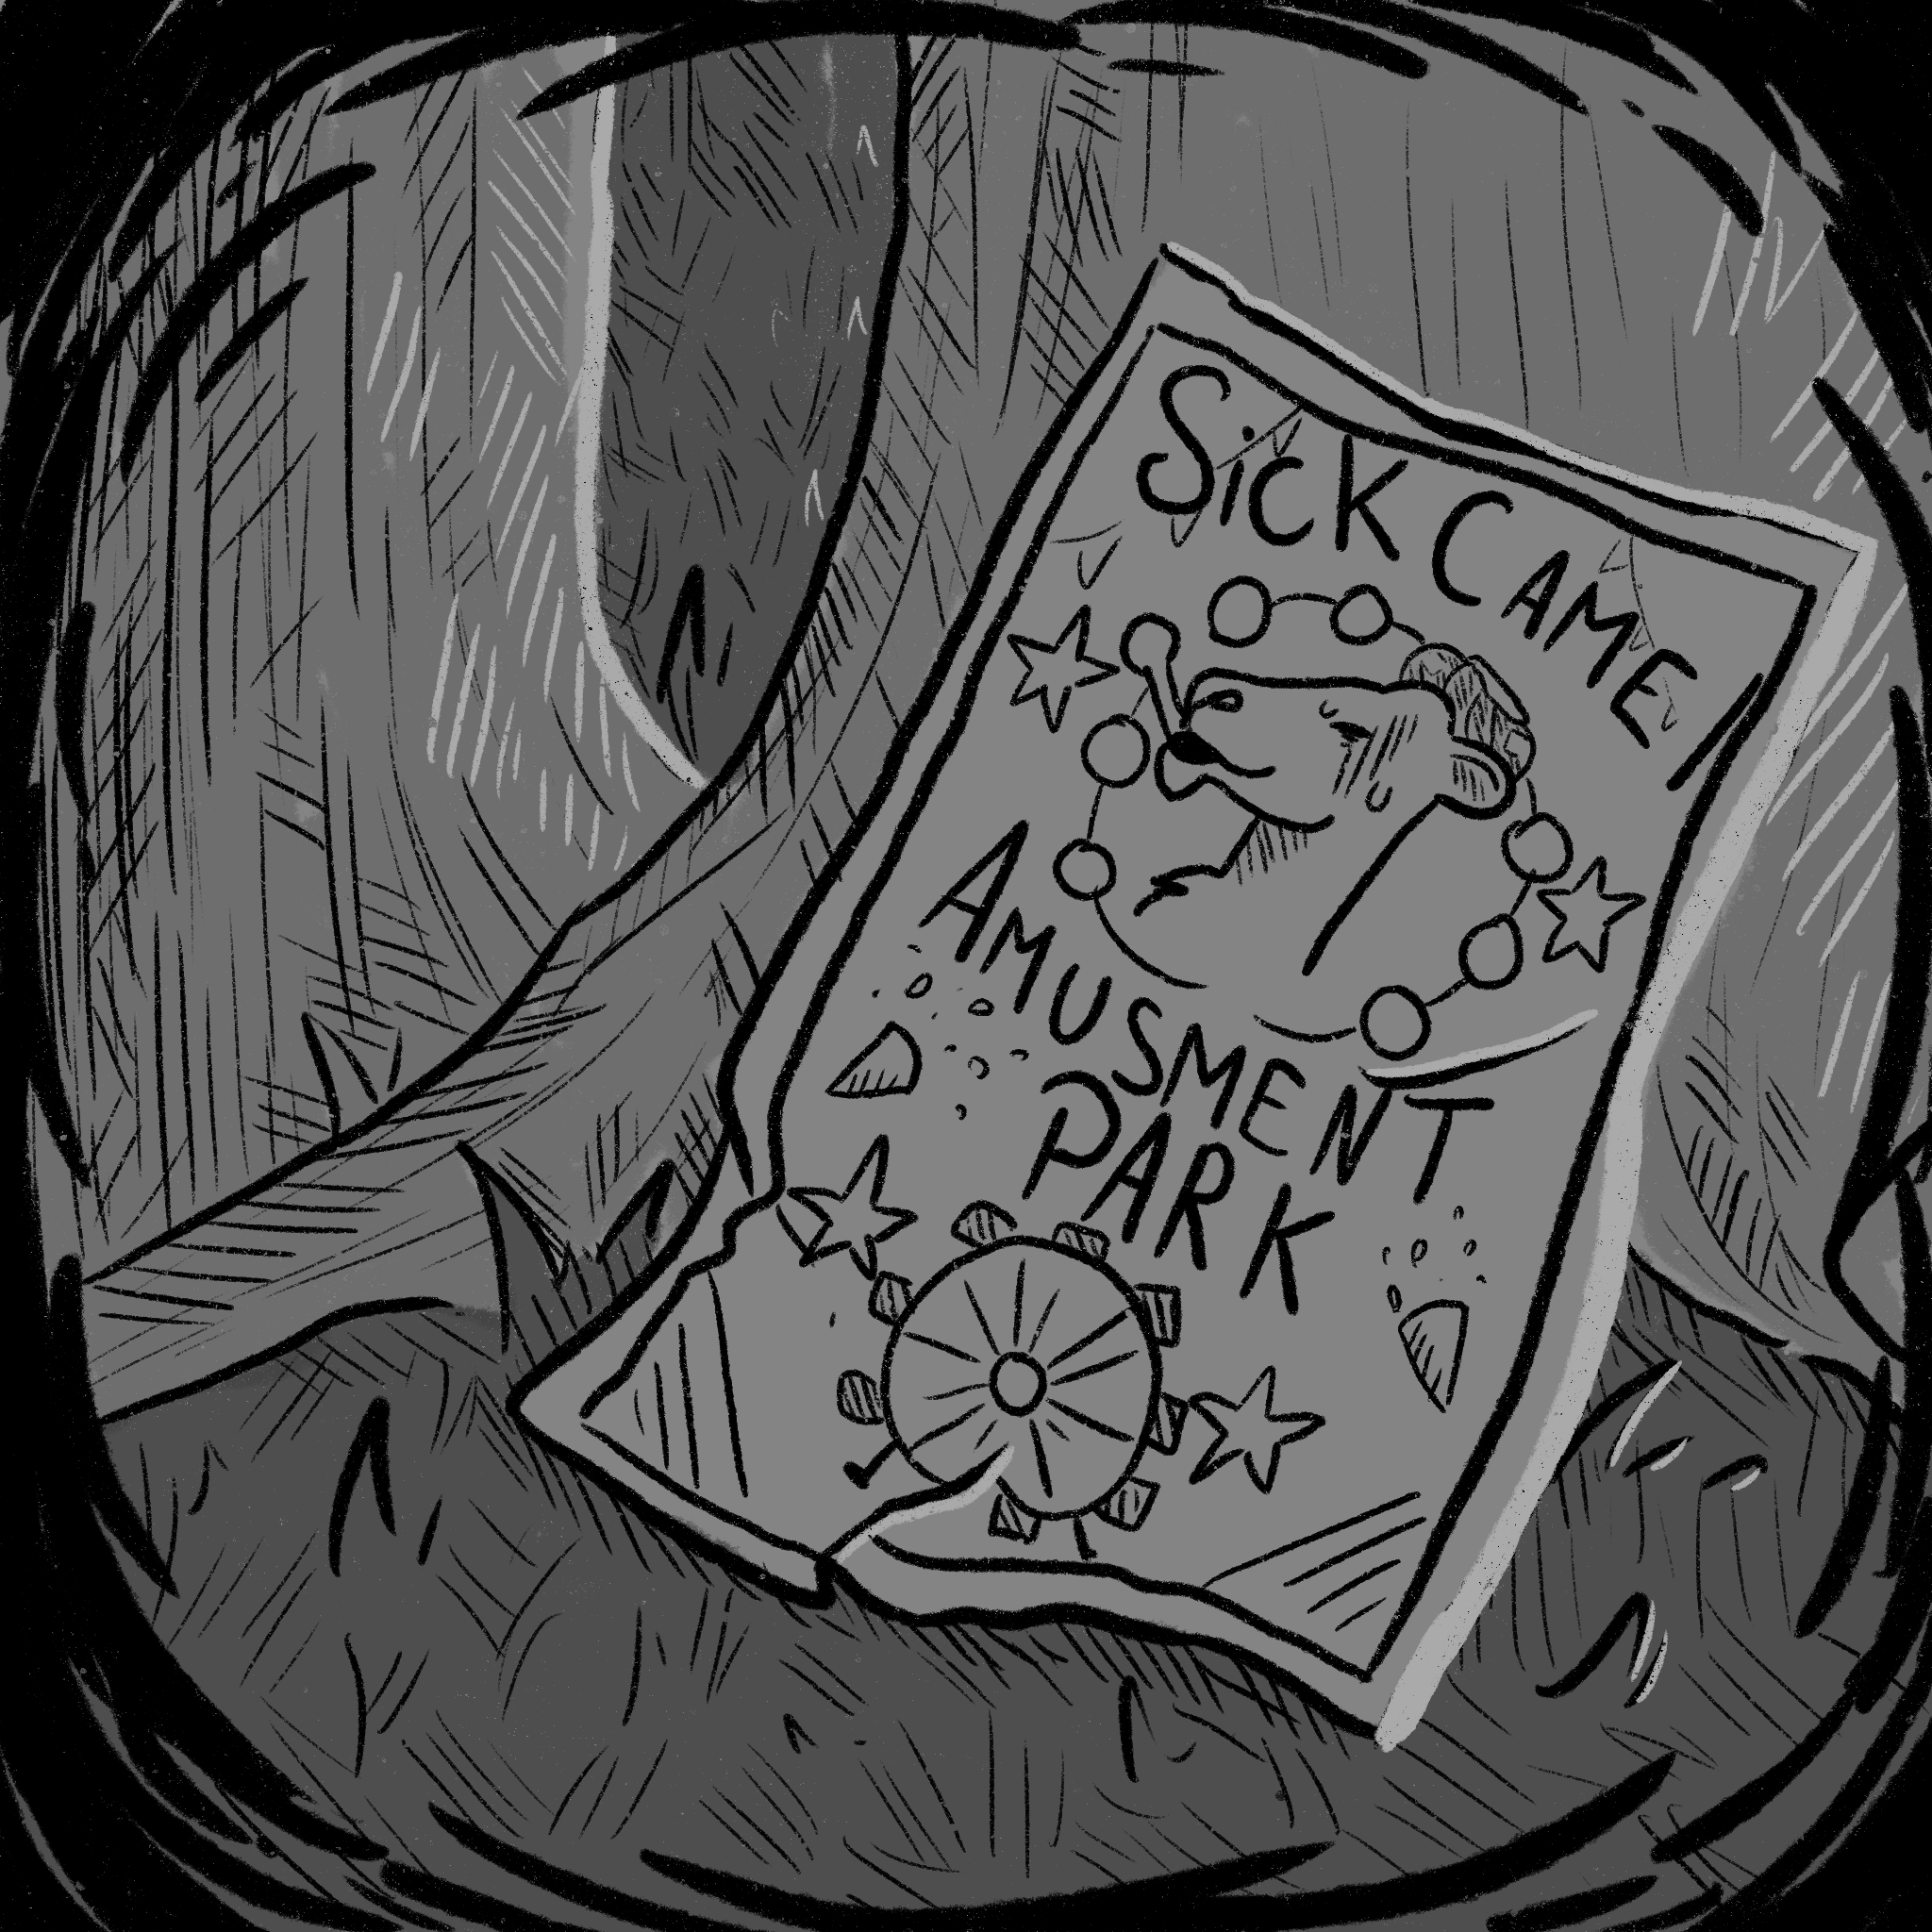 SicK CAMEl
AMUSMENT
PARK